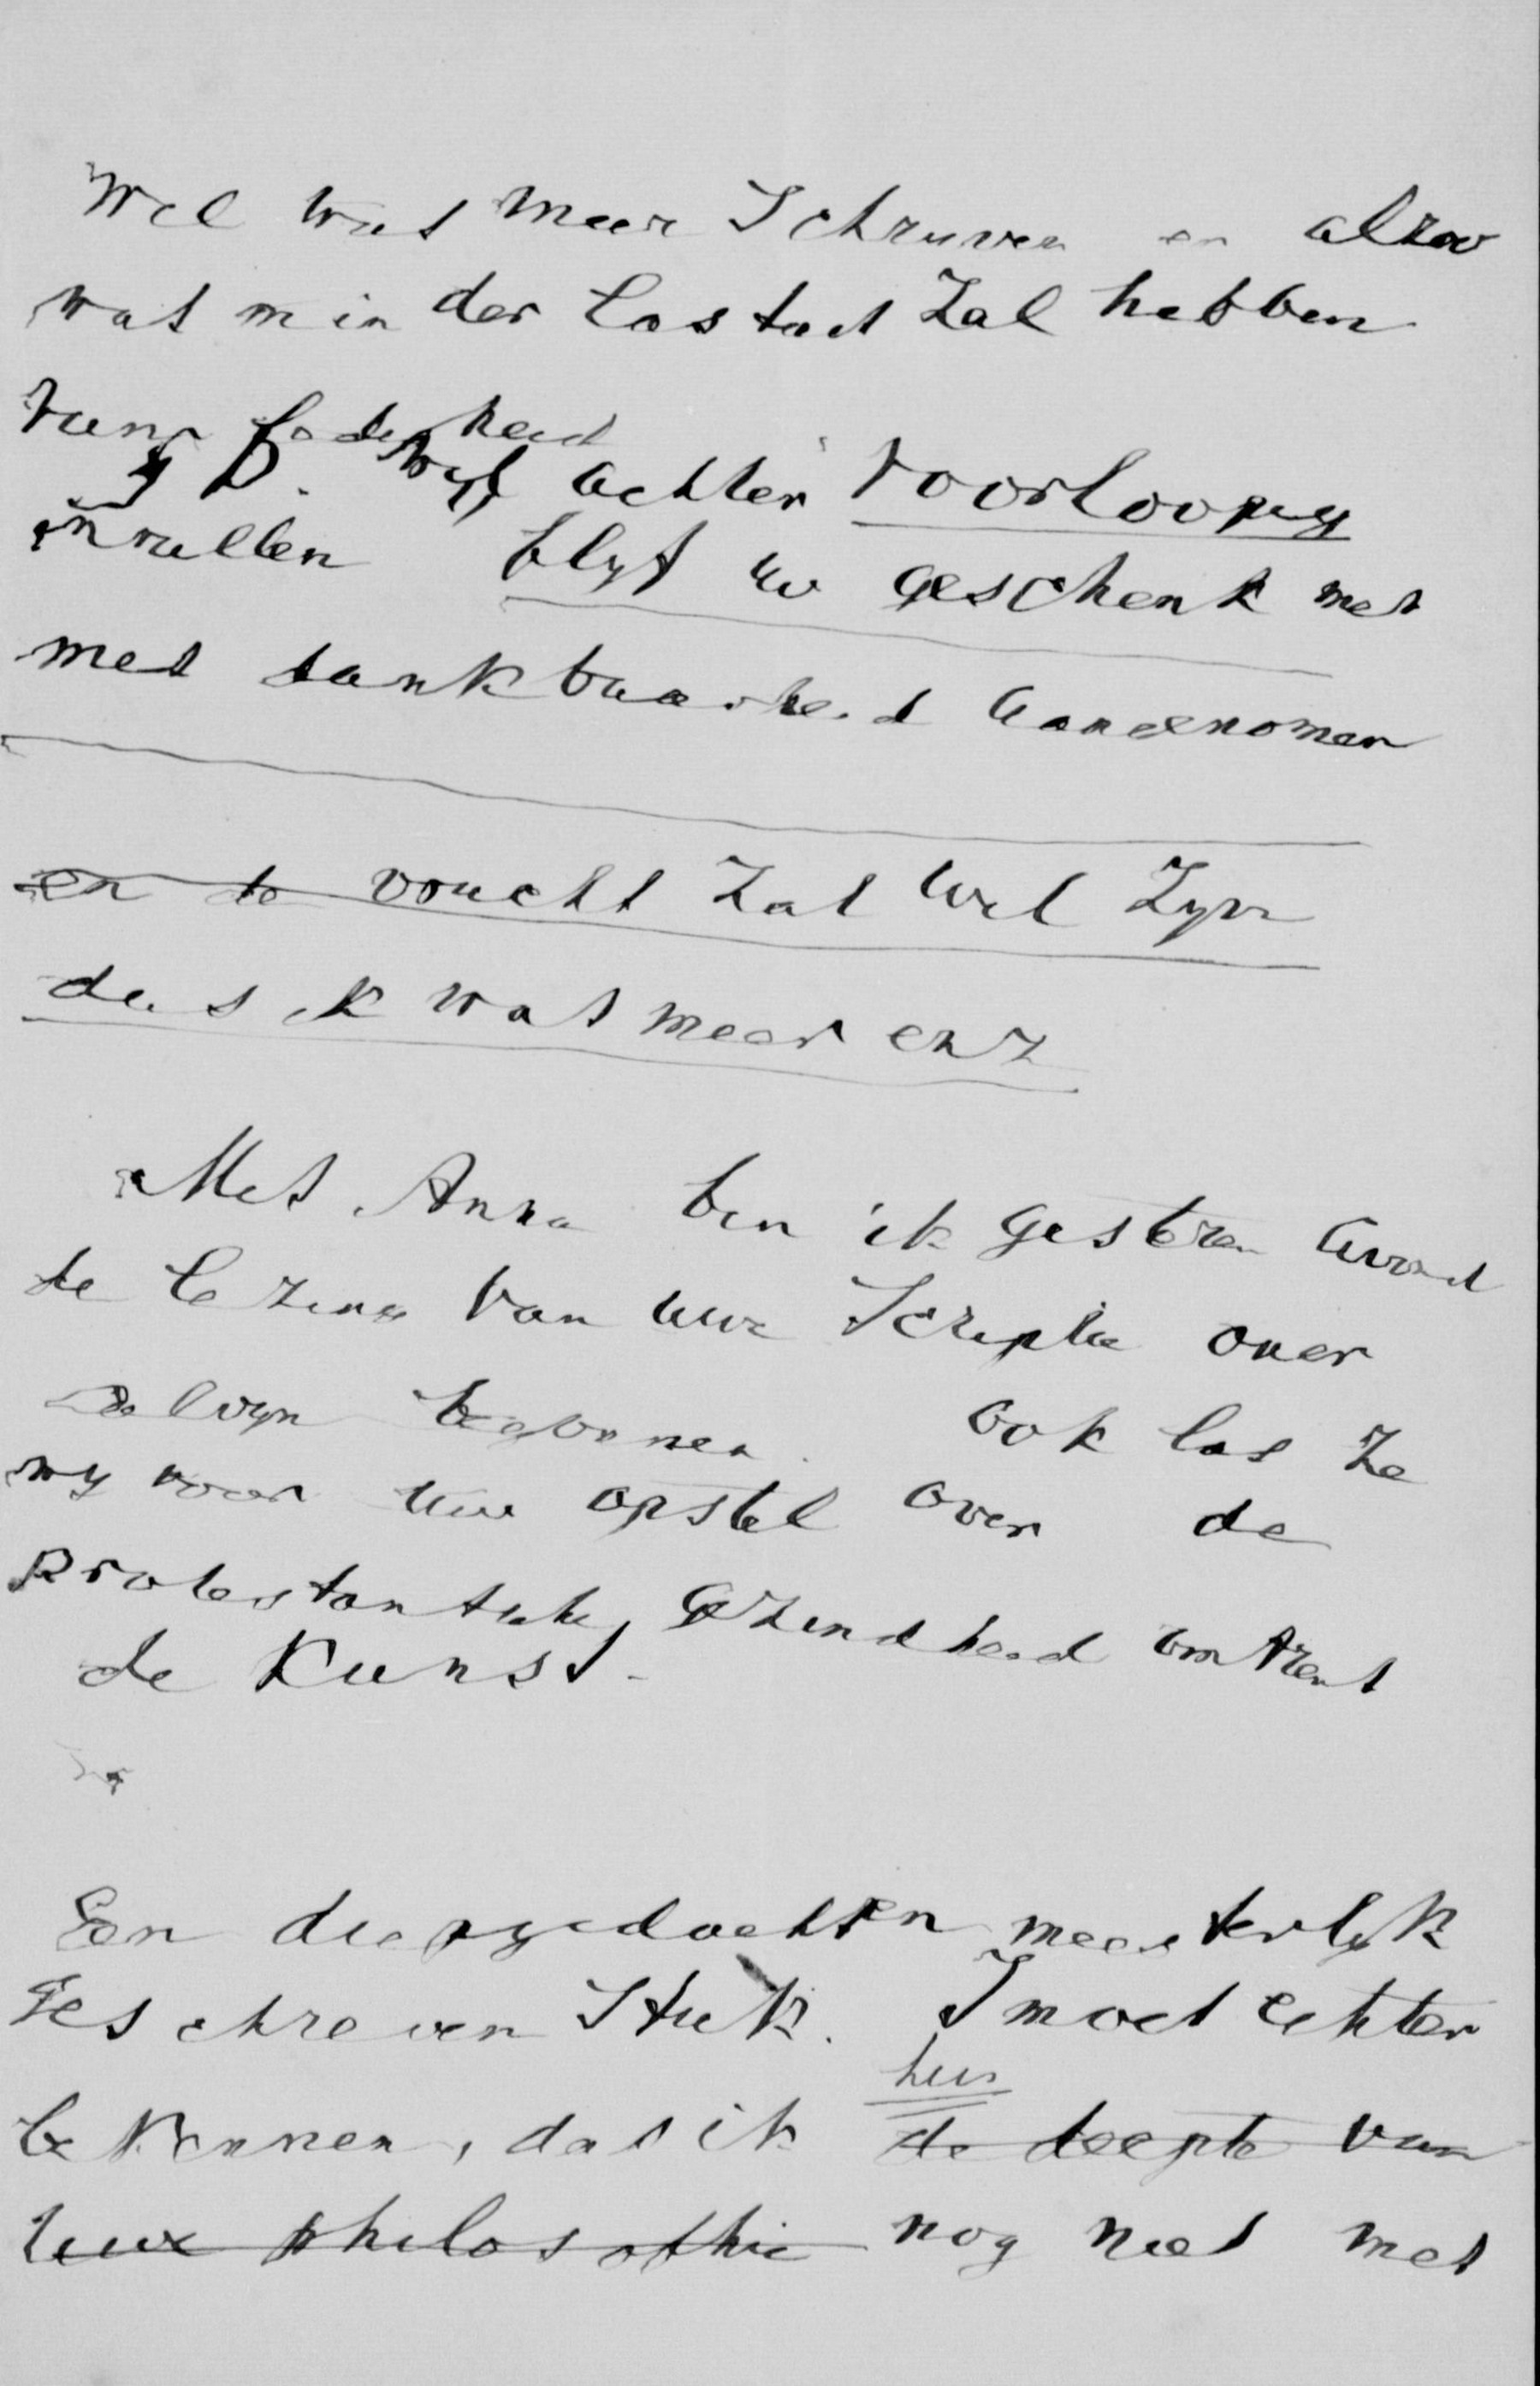 Wel wat meer Schryven en alzoo
wat minder last ad zal hebben
van
D. Wyl achter voorloopig
invullen blyft uw geschenk met
met dankbaarheid aangenomen
en de vrucht zal wel zyn
dat ik wat meer enz
Met Anna ben ik gisteren avond
de lezing van uwe Scriptie over
Calvyn begonnen. Ook las ze
my voor uw opstel over de
Protestantsche gezindheid omtrent
de Kunst.
Een diepgedachten meesterlyk
geschreven Stuk. I moet echter
hier
bekennen, dat ik de diepte van
uwe philosophie nog niet met